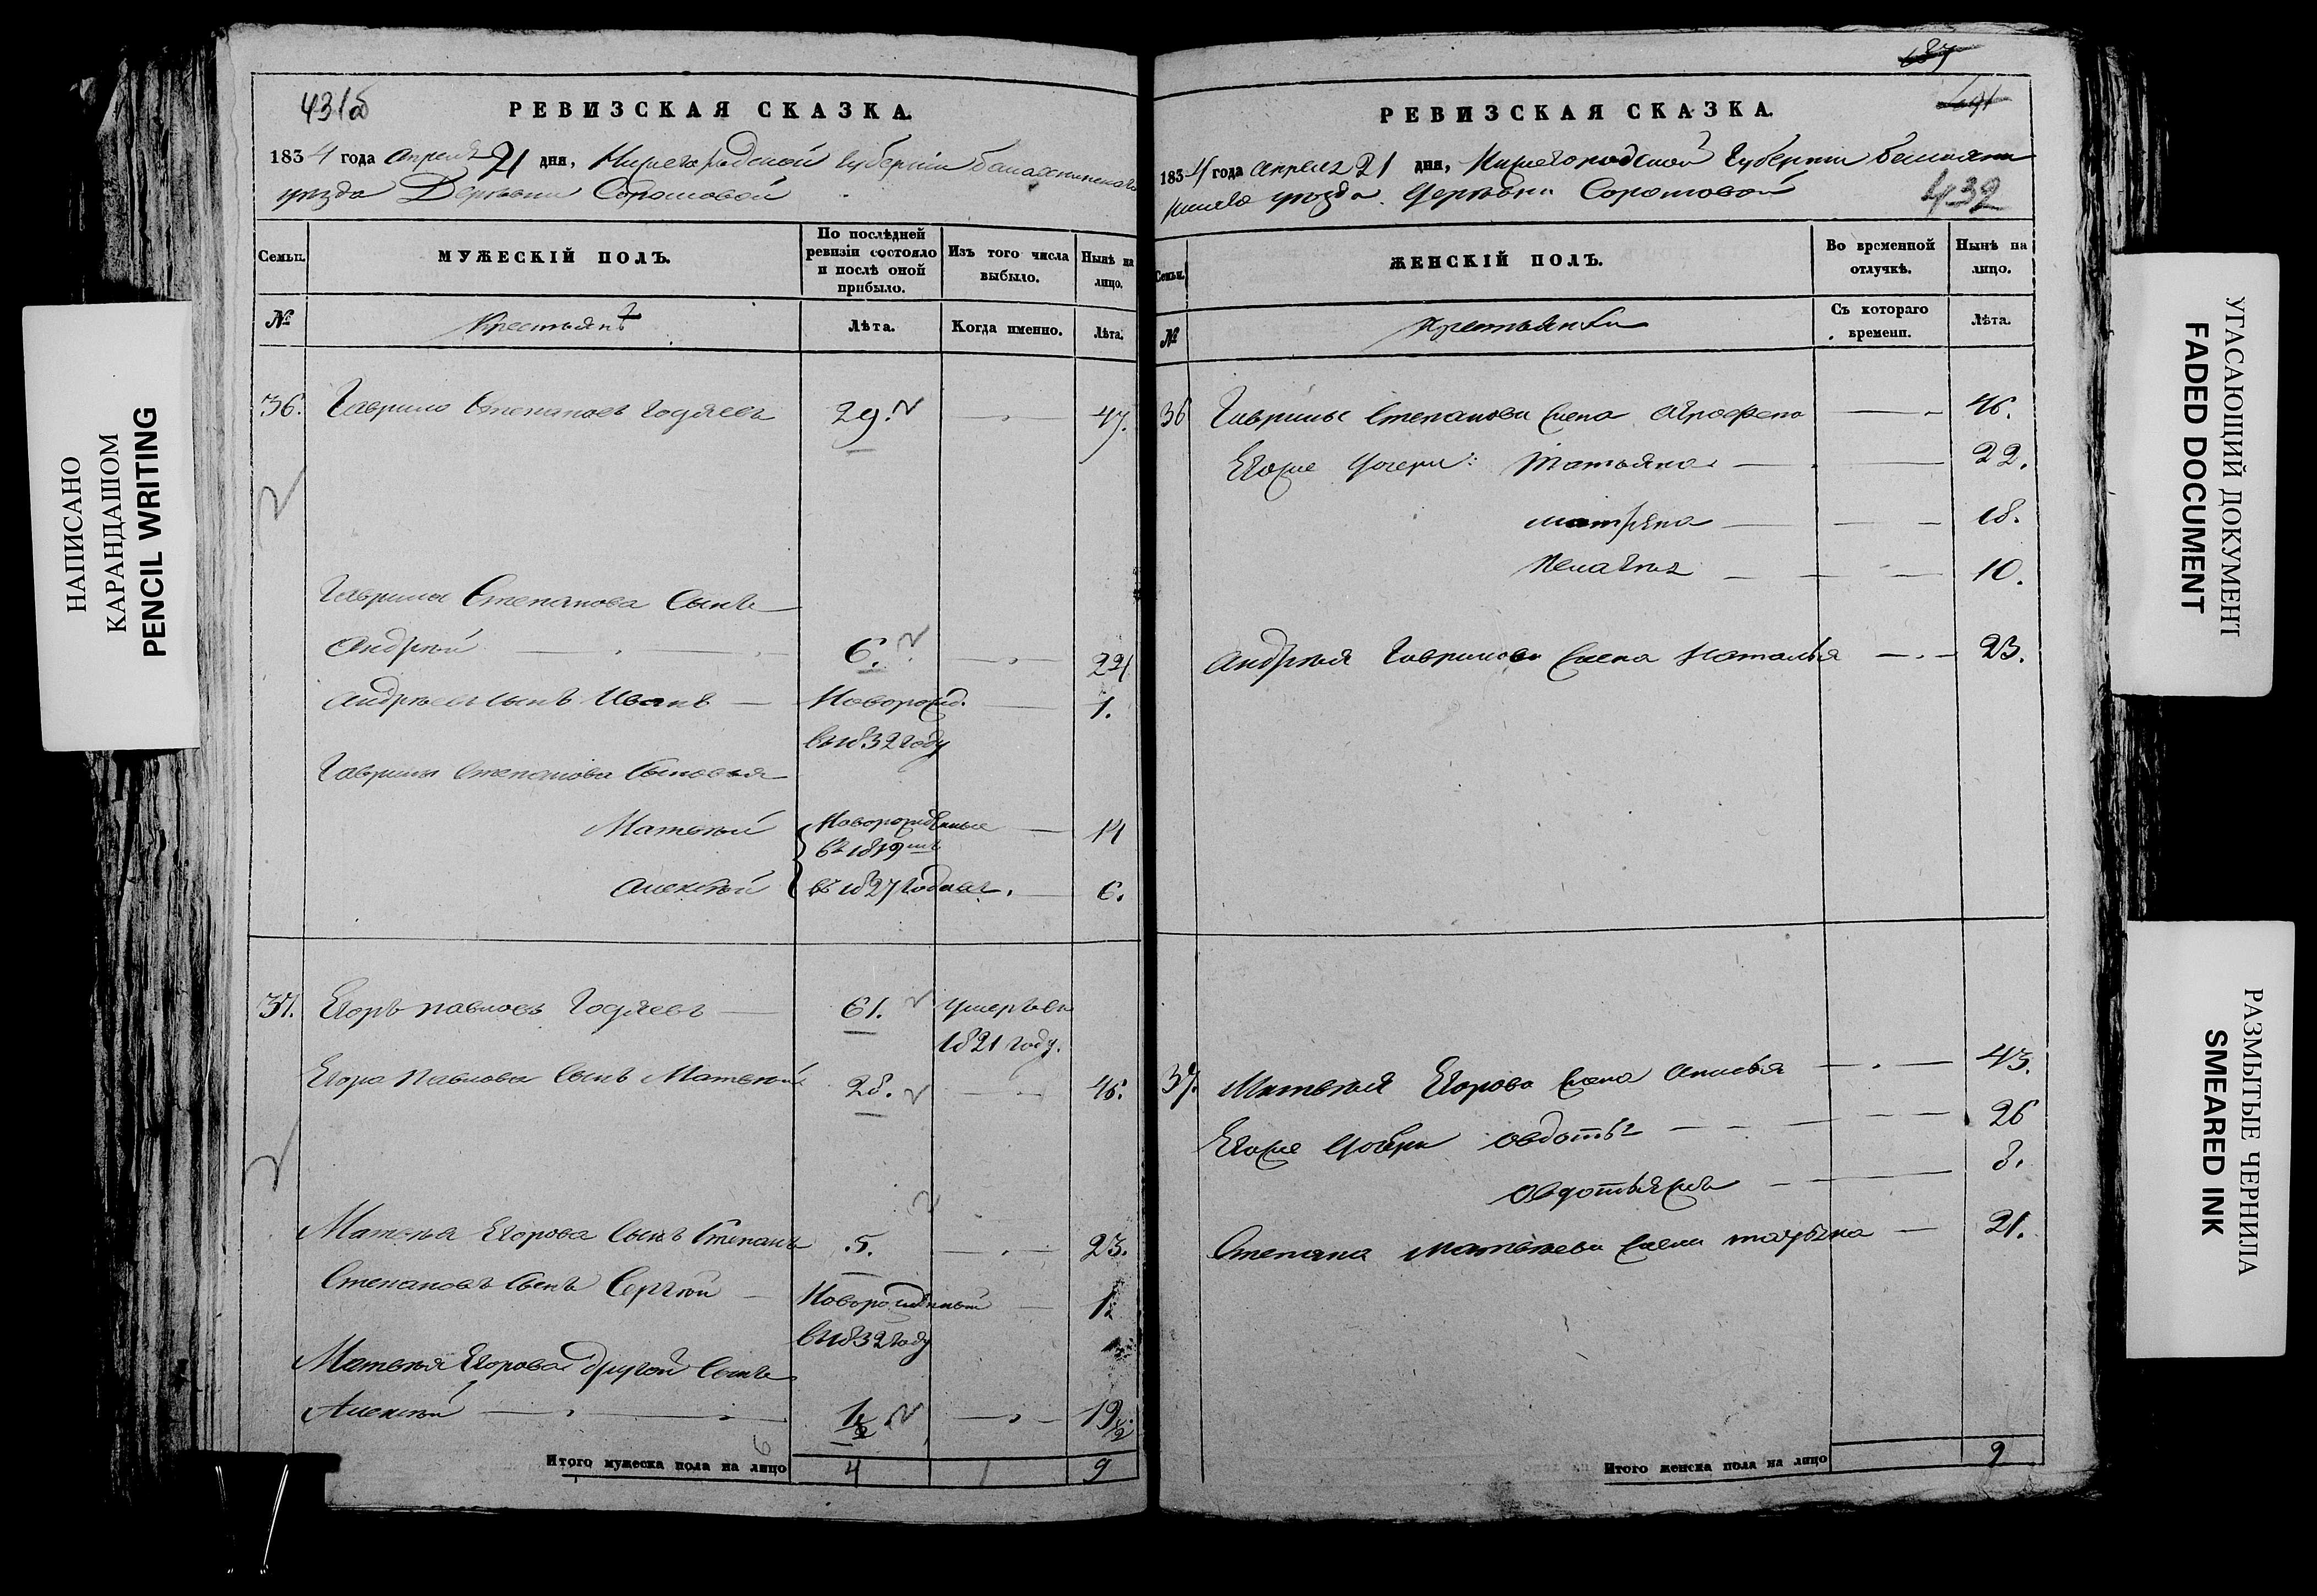 431об
РЕВИЗСКАЯ СКАЗКА.
1834 года апреля 21 дня, Нижегородской Губернии Балахнинскаго
уезда Деревни Сормовой
Семьи.
МУЖЕСКІЙ ПОЛЪ.
По послѣдней ревизіи состояло и послѣ оной прибыло.
Изъ того числа выбыло.
Нынѣ на лицо.
№
Крестьянъ
Лѣта.
Когда именно.
Лѣта.
36. Гаврило Степановъ 29. 47.
Гаврилы Степанова Сынъ
Андрей 6. 24
Андреевъ сынъ Иванъ Новорожд. 1.
въ 1832 году
Гаврилы Степанова Сыновья
Матвей Новорожденные 14
въ 1819мъ
Алексей въ 1827 годахъ. 6.
37. Егоръ Павловъ 61. умеръ въ
1821 году.
Егора Павлова Сынъ Матвей 28. 46.
Матвея Егорова Сынъ Степанъ 5. 23.
Степановъ Сынъ Сергей Новорожденный 1.
въ 1832 году
Матвея Егорова другой Сынъ
Алексей 1 1/2 19 1/2
6
Итого мужеска пола на лицо 4 1 9
687
РЕВИЗСКАЯ СКАЗКА.
1834 года апреля 21 дня, Нижегородской Губернии Балахни
нскаго уезда Деревни Сормовой
432
Семьи.
ЖЕНСКІЙ ПОЛЪ.
Во временной отлучкѣ.
Нынѣ на лицо.
№
Крестьянки
Съ котораго времени.
Лѣта.
36 Гаврилы Степанова жена Аграфена 46.
Егоже дочери: Татьяна 22.
Матрена 18.
Пелагия 10.
Андрея Гаврилова жена Наталья 23.
37. Матвея Егорова жена Анисья 43.
Егоже дочери Овдотья 26
Овдотья же 8.
Степана Матвеева жена 21.
Итого женска пола на лицо 9
НАПИСАНО
КАРАНДАШОМ
PENCIL WRITING
УГАСАЮЩИЙ ДОКУМЕНТ
FADED DOCUMENT
РАЗМЫТЫЕ ЧЕРНИЛА
SMEARED INK